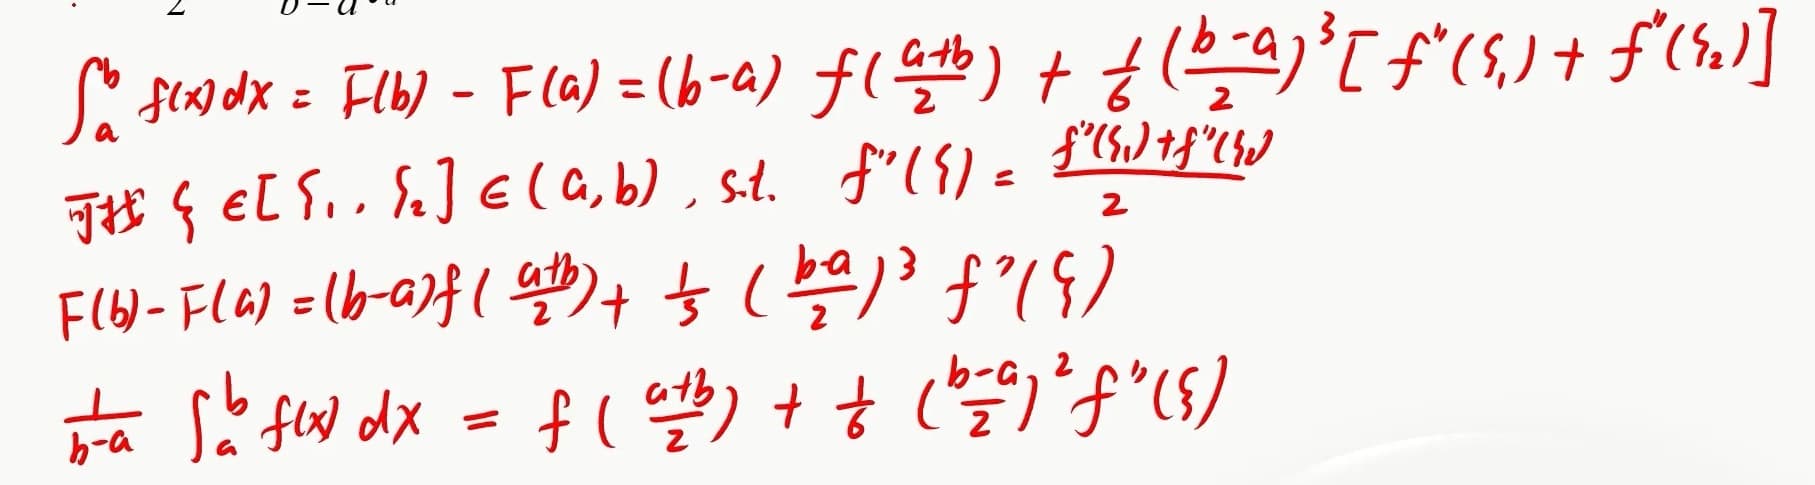 2 b-a
∫_a^b f(x)dx = F(b) - F(a) = (b-a) f((a+b)/2) + 1/6 ((b-a)/2)^3 [f''(ξ₁) + f''(ξ₂)]
可找 ξ ∈ [ξ₁, ξ₂] ∈ (a,b), s.t. f''(ξ) = (f''(ξ₁) + f''(ξ₂))/2
F(b) - F(a) = (b-a)f((a+b)/2) + 1/3 ((b-a)/2)^3 f''(ξ)
1/(b-a) ∫_a^b f(x) dx = f((a+b)/2) + 1/6 ((b-a)/2)^2 f''(ξ)